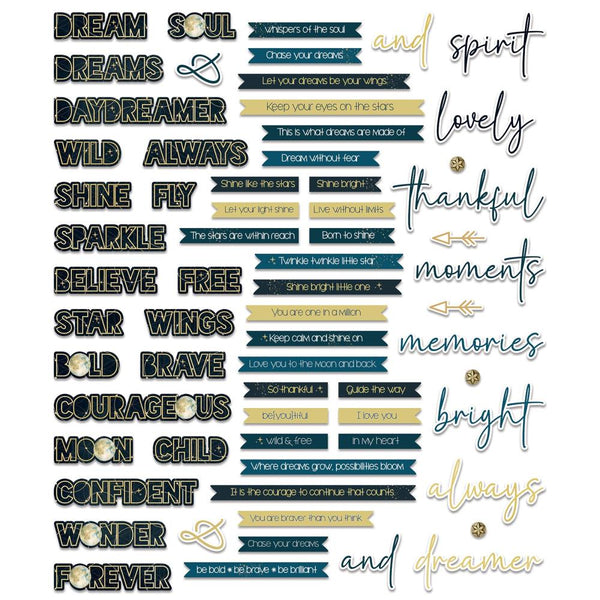 DREAM SOUL
DREAMS
DAYDREAMER
WILD ALWAYS
SHINE FLY
SPARKLE
BELIEVE FREE
STAR WINGS
BOLD BRAVE
COURAGEOUS
MOON CHILD
CONFIDENT
WONDER
FOREVER
whispers of the soul
Chase your dreams
Let your dreams be your wings
Keep your eyes on the stars
This is what dreams are made of
Dream without fear
Shine like the stars Shine bright
Let your light shine Live without limits
The stars are within reach Born to shine
Twinkle twinkle little star
Shine bright little one
You are one in a Million
Keep calm and shine on
Love you to the Moon and back
So thankful Guide the way
be[you]tiful I love you
wild & free In My heart
Where dreams grow, possibilities bloom
It is the courage to continue that counts
You are braver than you think
Chase your dreams
be bold * be brave * be brilliant
and spirit
lovely
thankful
moments
memories
bright
always
and dreamer